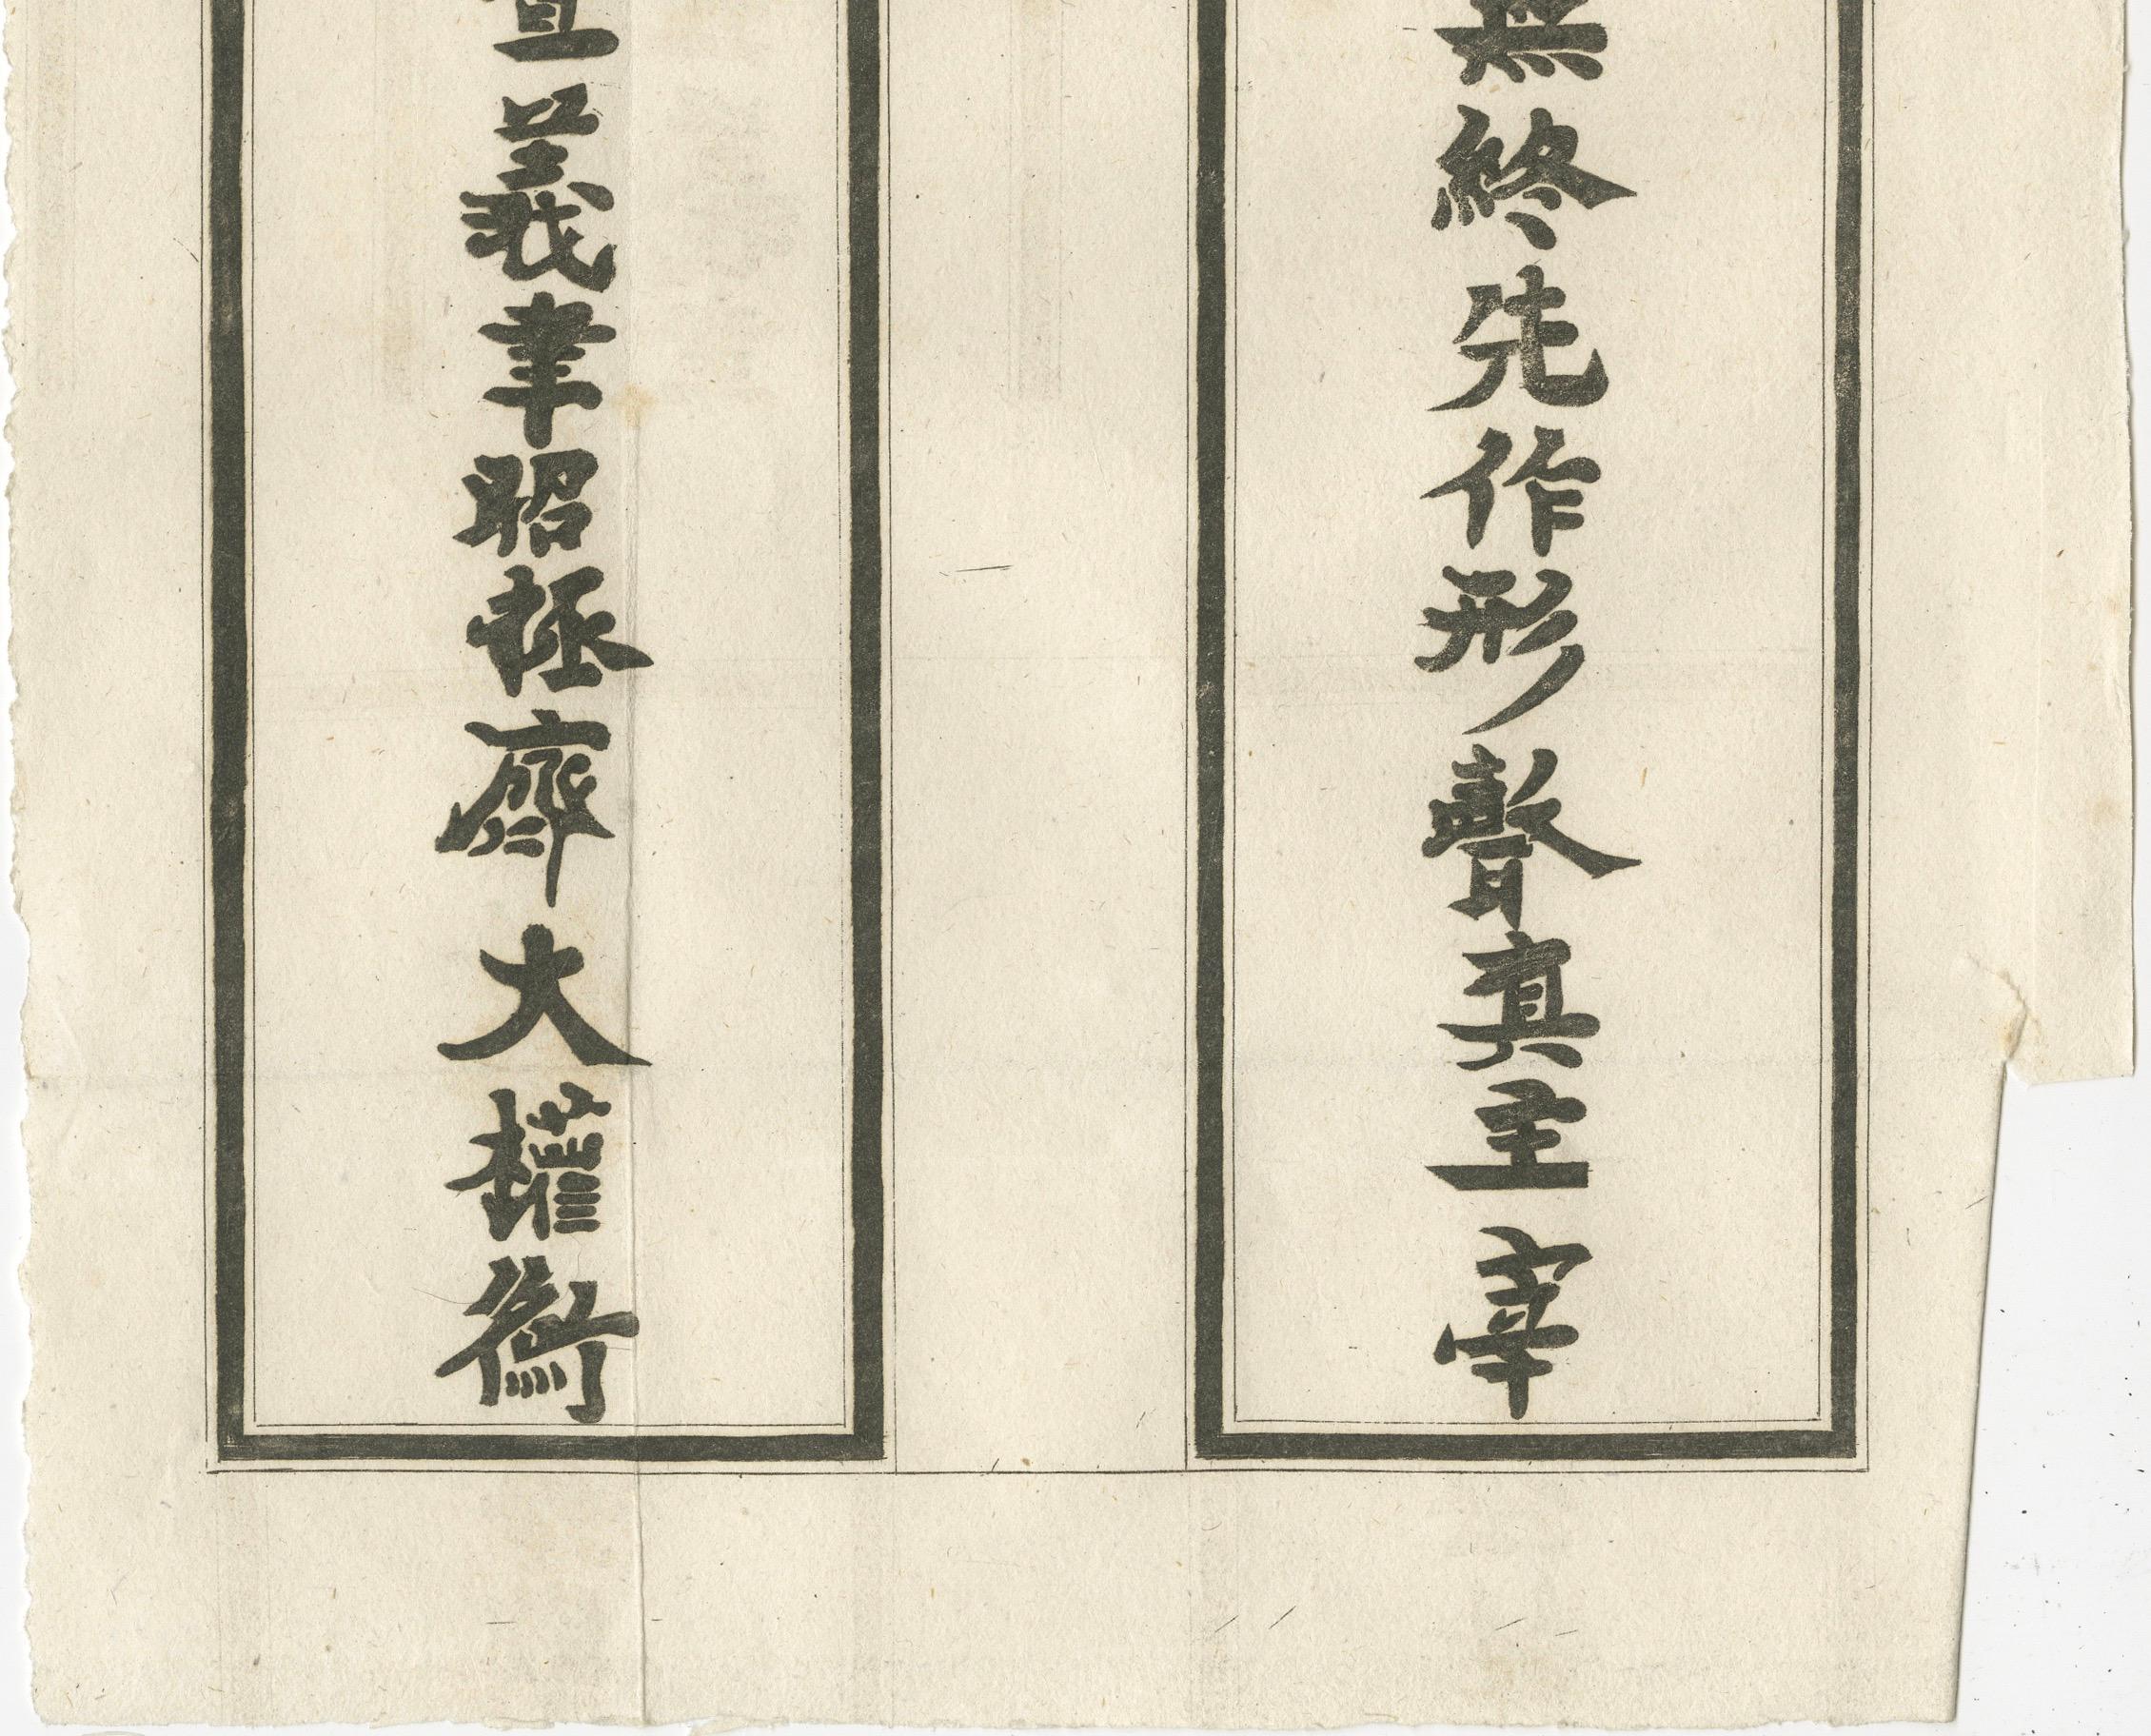 無終先作形聲真主宰
宣義聿昭拯濟大權衡